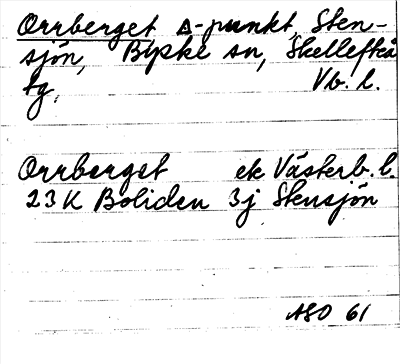 Orrberget Δ-punkt, Sten-
sjön, Byske sn, Skellefteå
tg. Vb. l.
Orrberget ek Västerb. l.
23K Boliden 3j Stensjön
ASO 61